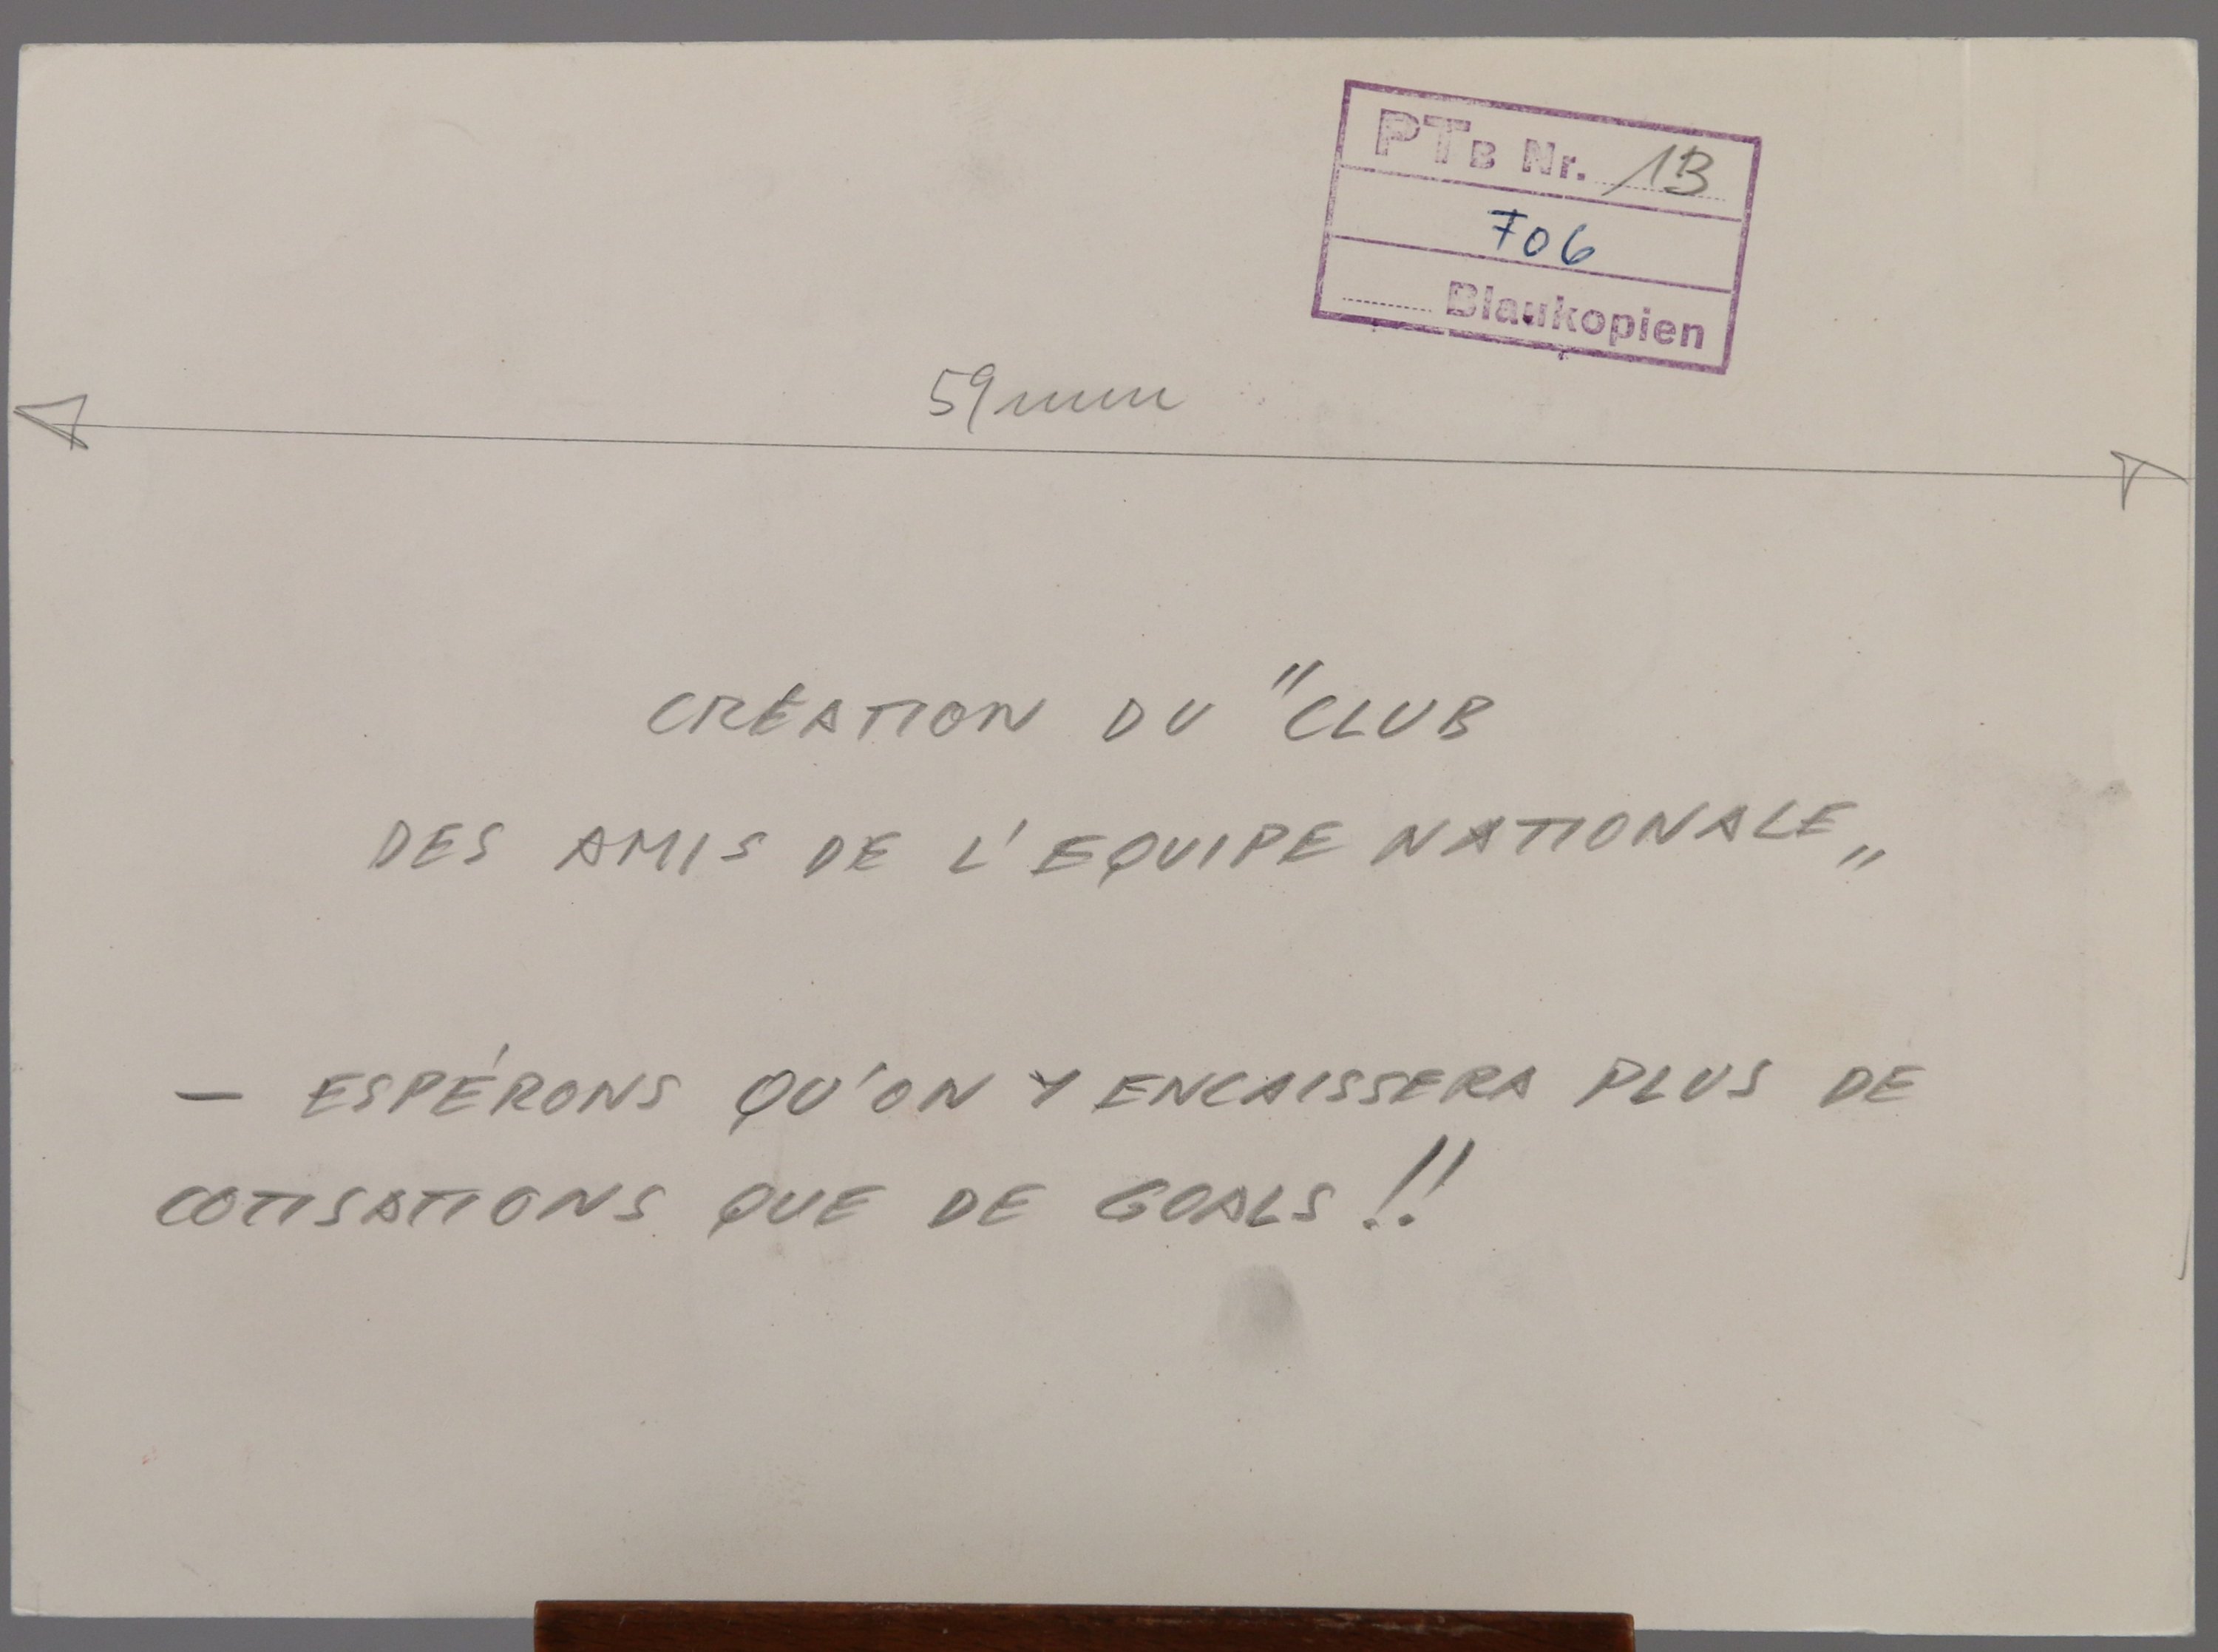 PTB Nr. 1B
706
Blaukopien
59 mm
CRÉATION DU "CLUB
DES AMIS DE L'EQUIPE NATIONALE„
— ESPÉRONS QU'ON Y ENCAISSERA PLUS DE
COTISATIONS QUE DE GOALS!!